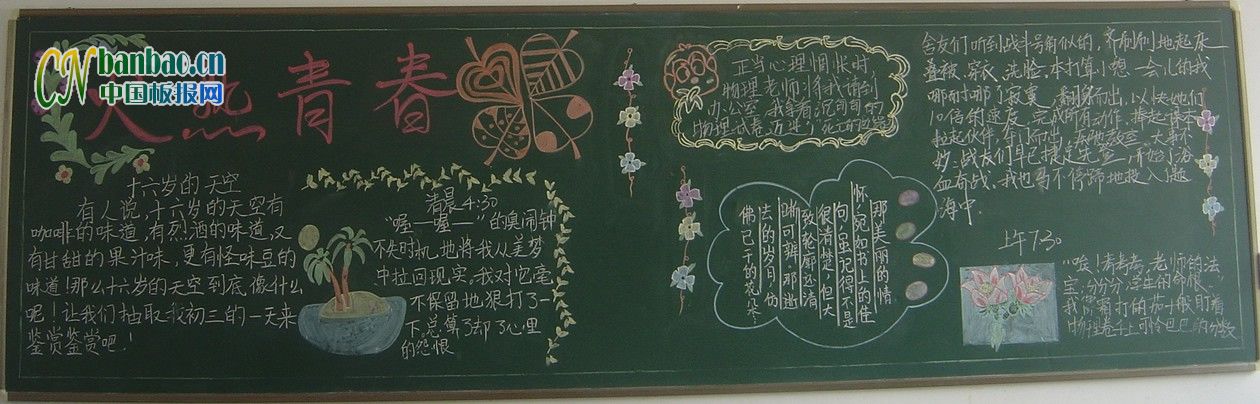 CN banbao.cn
中国板报网
火热青春
十六岁的天空
有人说,十六岁的天空有
咖啡的味道,有烈酒的味道,又
有甘甜的果汁味,更有怪味豆的
味道!那么十六岁的天空到底像什么
呢!让我们抽取我初三的一天来
鉴赏鉴赏吧!
清晨4:30
“喔—喔—”的臭闹钟
不失时机地将我从美梦
中拉回现实。我对它毫
不保留地狠打了一
下,总算了却了心里
的怨恨
正当心理惆怅时
物理老师将我请到
办公室 我拿着沉甸甸的
物理试卷
那美丽的情
怀,宛如书上的佳
句,虽记得不是
很清楚,但大
致轮廓还清
晰可辨,那逝
去的岁月,仿
佛已干的花朵…
舍友们听到战斗号角似的,齐刷刷地起床
叠被、穿衣、洗脸,本打算小憩一会儿的我
哪耐得了寂寞,翻身而出,以快她们
10倍的速度,完成所有动作,捧起课本
拉起伙伴,夺门而出,
妙:战友们早已捷足先登,开始了浴
血奋战,我也马不停蹄地投入了题
海中.
上午7:30
“唉!考考考,老师的法
宝,分分分 学生的命根,
我像霜打的茄子般